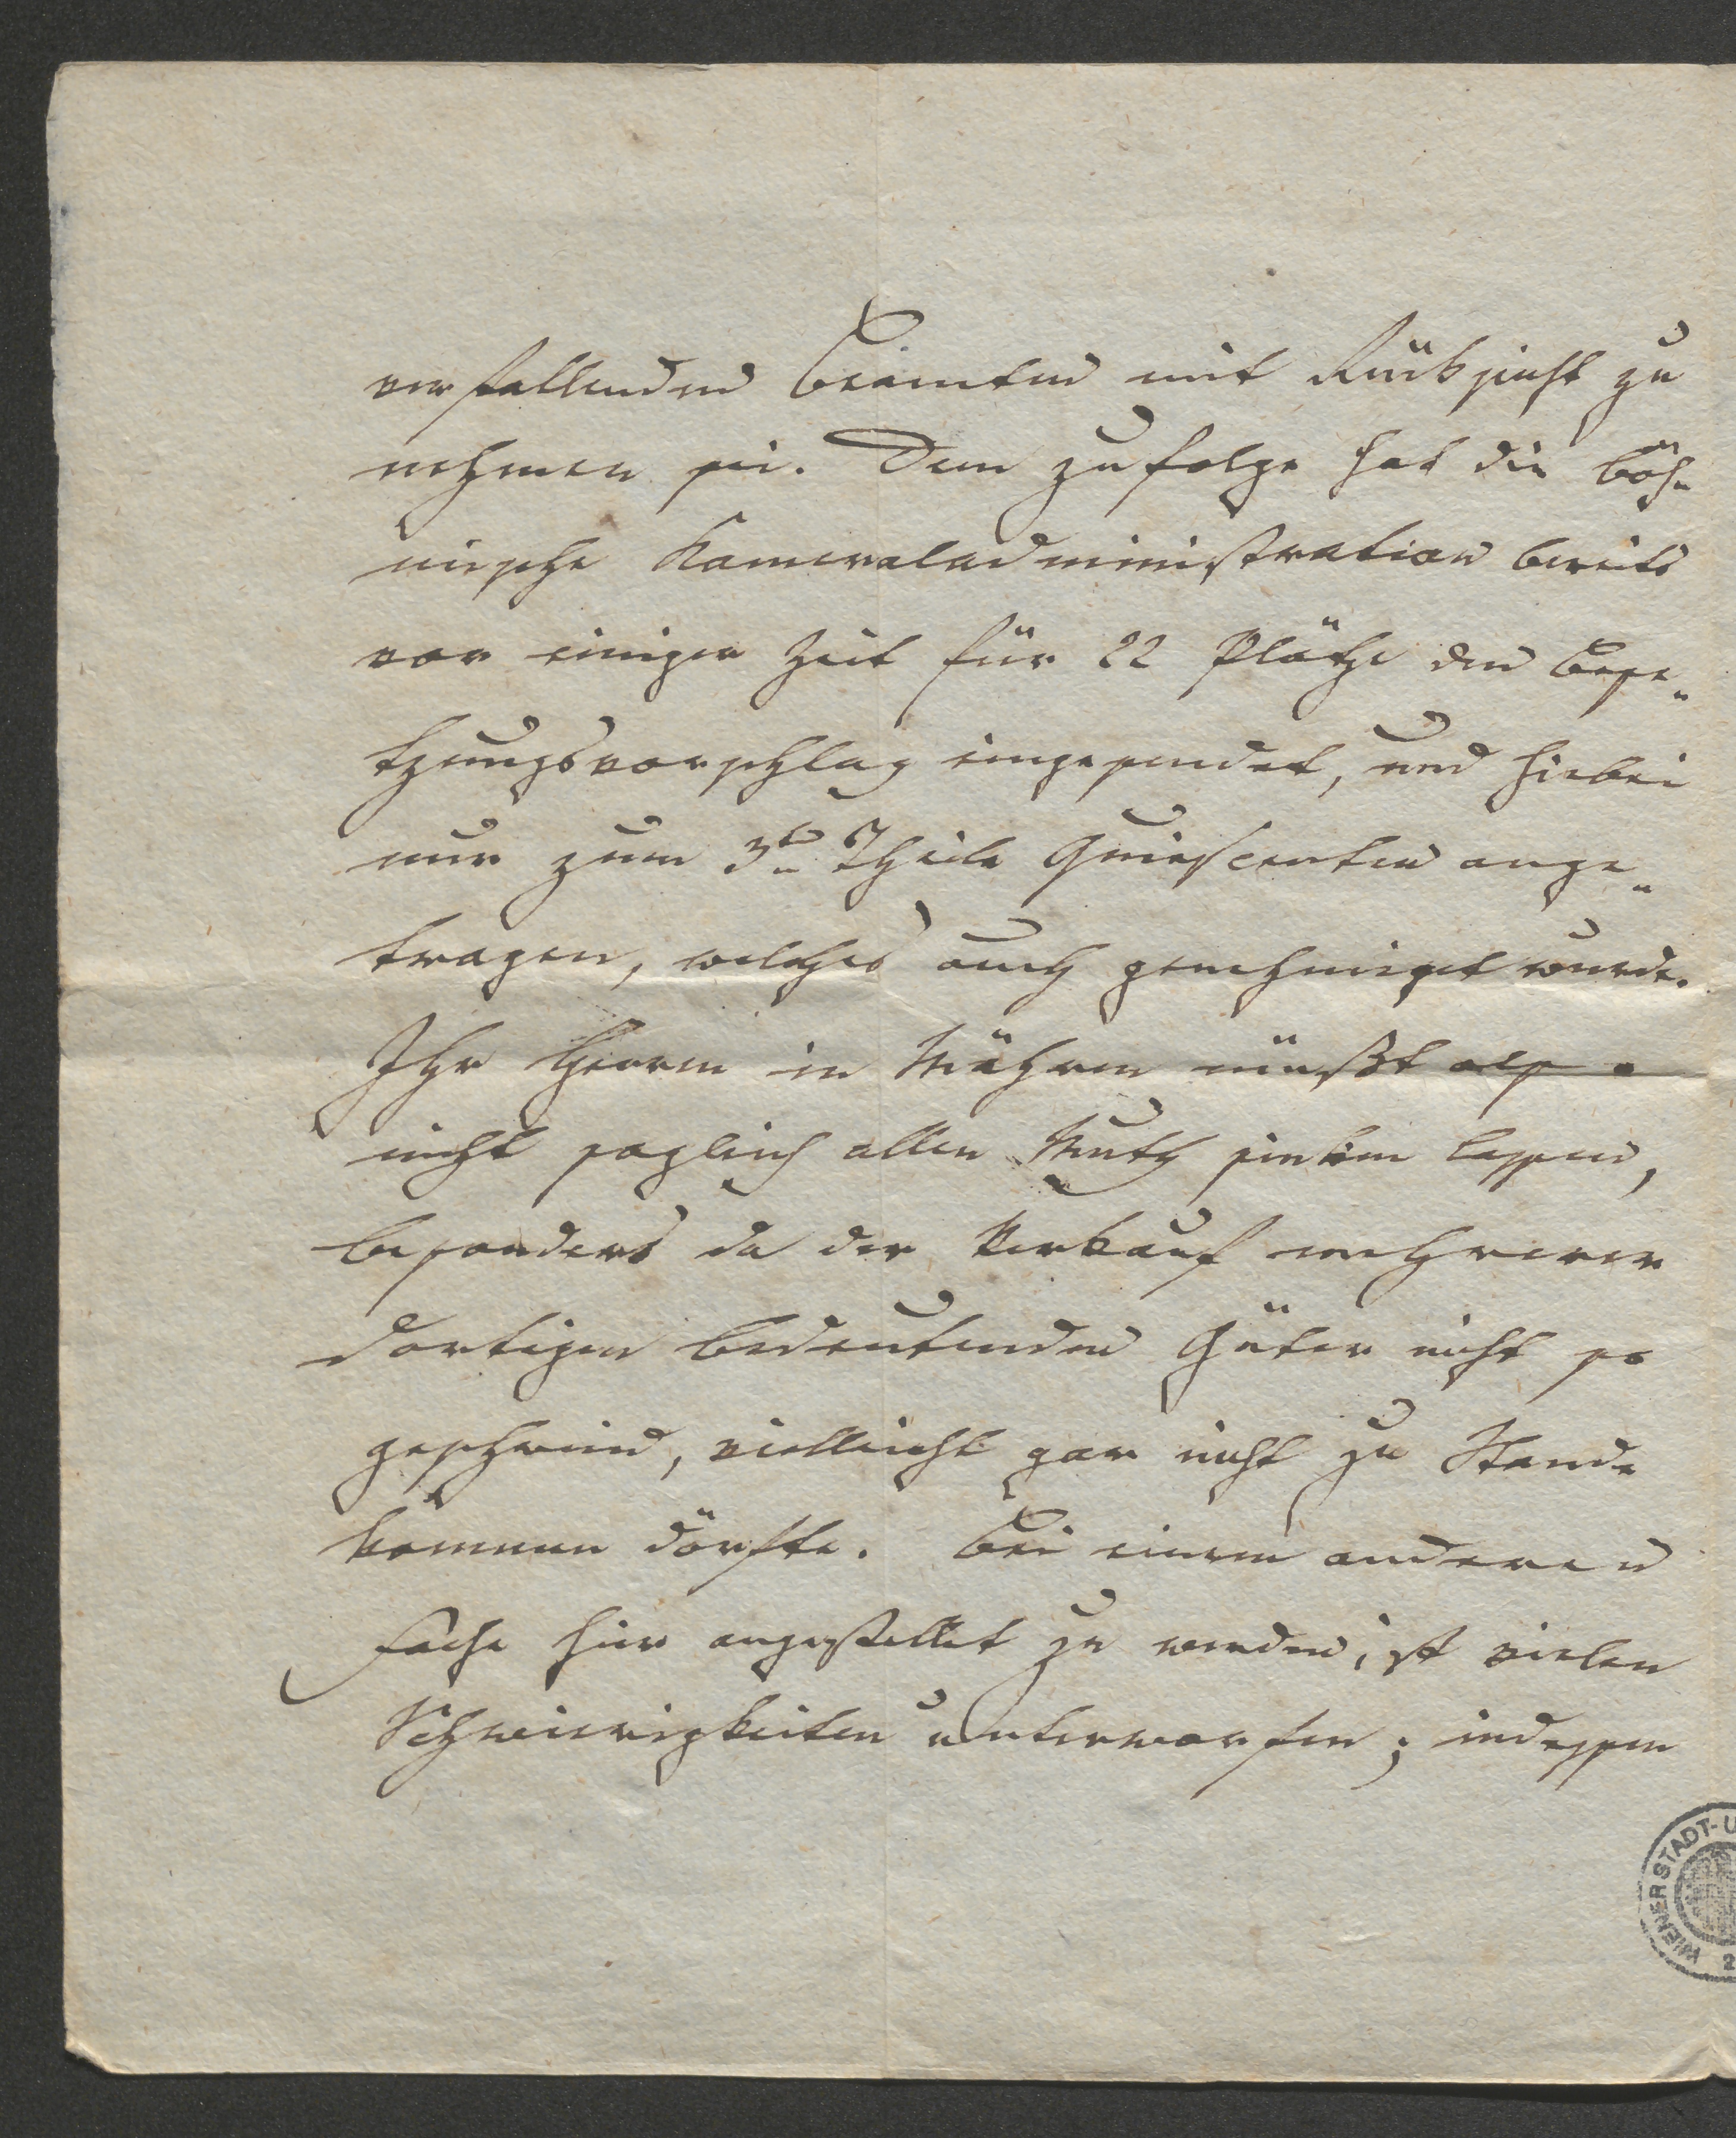 verfallenden Beamten mit Rücksicht zu
nehmen sei. Dem zufolge hat die böh=
mische Kameraladministration bereits
vor einiger Zeit für 22 Plätze den Bese=
tzungsvorschlag eingesendet, und hiebei
nur zum 3ten Theile Quiescenten ange=
tragen, welches auch genehmiget wurde.
Ihr Herren in Mähren müßt also
nicht sogleich allen Muth sinken lassen,
besonders da der Verkauf mehrerer
dortigen bedeutenden Güter nicht so
geschwind, vielleicht gar nicht zu Stande
kommen dörfte. Bei einem anderen
Fache hier angestellet zu werden, ist vielen
Schwierigkeiten unterworfen; indessen
WIENER STADT-U
2